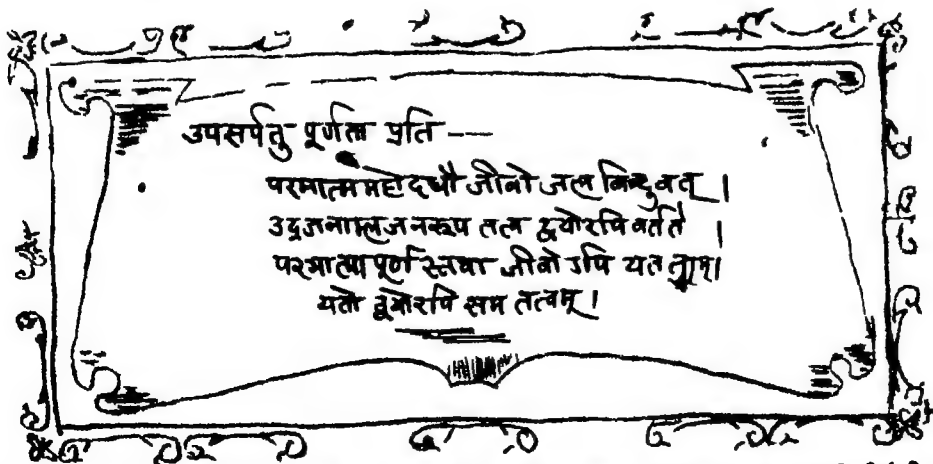 उपसर्पतु पूर्णता प्रति ---
परमात्ममहोदधौ जीवो जल बिन्दुवत् ।
उद्रजनाम्लजनरूप तत्व द्वयोरपि वर्तते ।
परमात्मा पूर्ण स्तथा जीवो ऽपि यतताम् ।
यतो द्वयोरपि सम तत्वम् ।